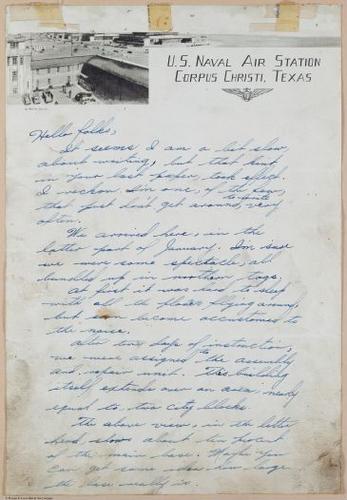 U.S. NAVAL AIR STATION
CORPUS CHRISTI, TEXAS
Hello folks,
It seems I am a bit slow,
about writing, but that hint
in your last paper, took effect.
I reckon I'm one, of the few,
that just don't get around, very
to write
often.
We arrived here, in the
latter part of January. I'm sure
we were some spectacle, all
bundled up in northern togs.
At first it was hard to sleep
with all the planes flying around,
but soon became accustomed to
the noise.
After two days of instruction,
we were assigned to the assembly
and repair unit. This building
itself extends over an area, nearly
equal to two city blocks.
The above view, in the letter
head, shows about ten percent
of the main base. Maybe you
can get some idea how large
the base really is.